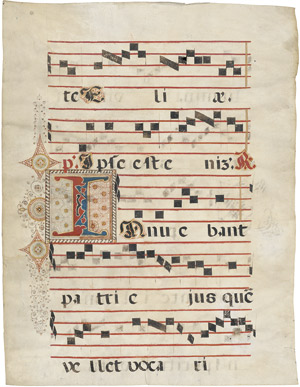 te E li æ.
p̄. Ipse est e niz. R
I Nnue bant
pa tri e jus quē
ve llet voca ri